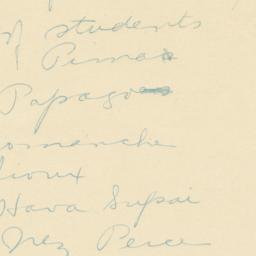 of students
Pima
Papago
omanche
Sioux
Hava Supai
Nez Perce